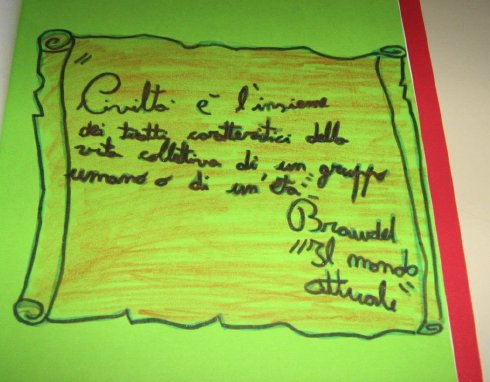 "Civiltà è l'insieme
dei tratti caratteristici della
vita collettiva di un gruppo
umano o di un'età"
Braudel
"Il mondo
attuale"